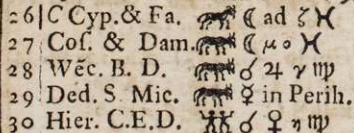 26 C Cyp. & Fa. ☾ ad ζ ♓
27 Coſ. & Dam. ☾ μ ο ♓
28 Wẽc. B. D. ☌ ♃ γ ♍
29 Ded. S Mic. ☿ in Perih.
30 Hier. C.E.D. ☌ ♀ η ♍